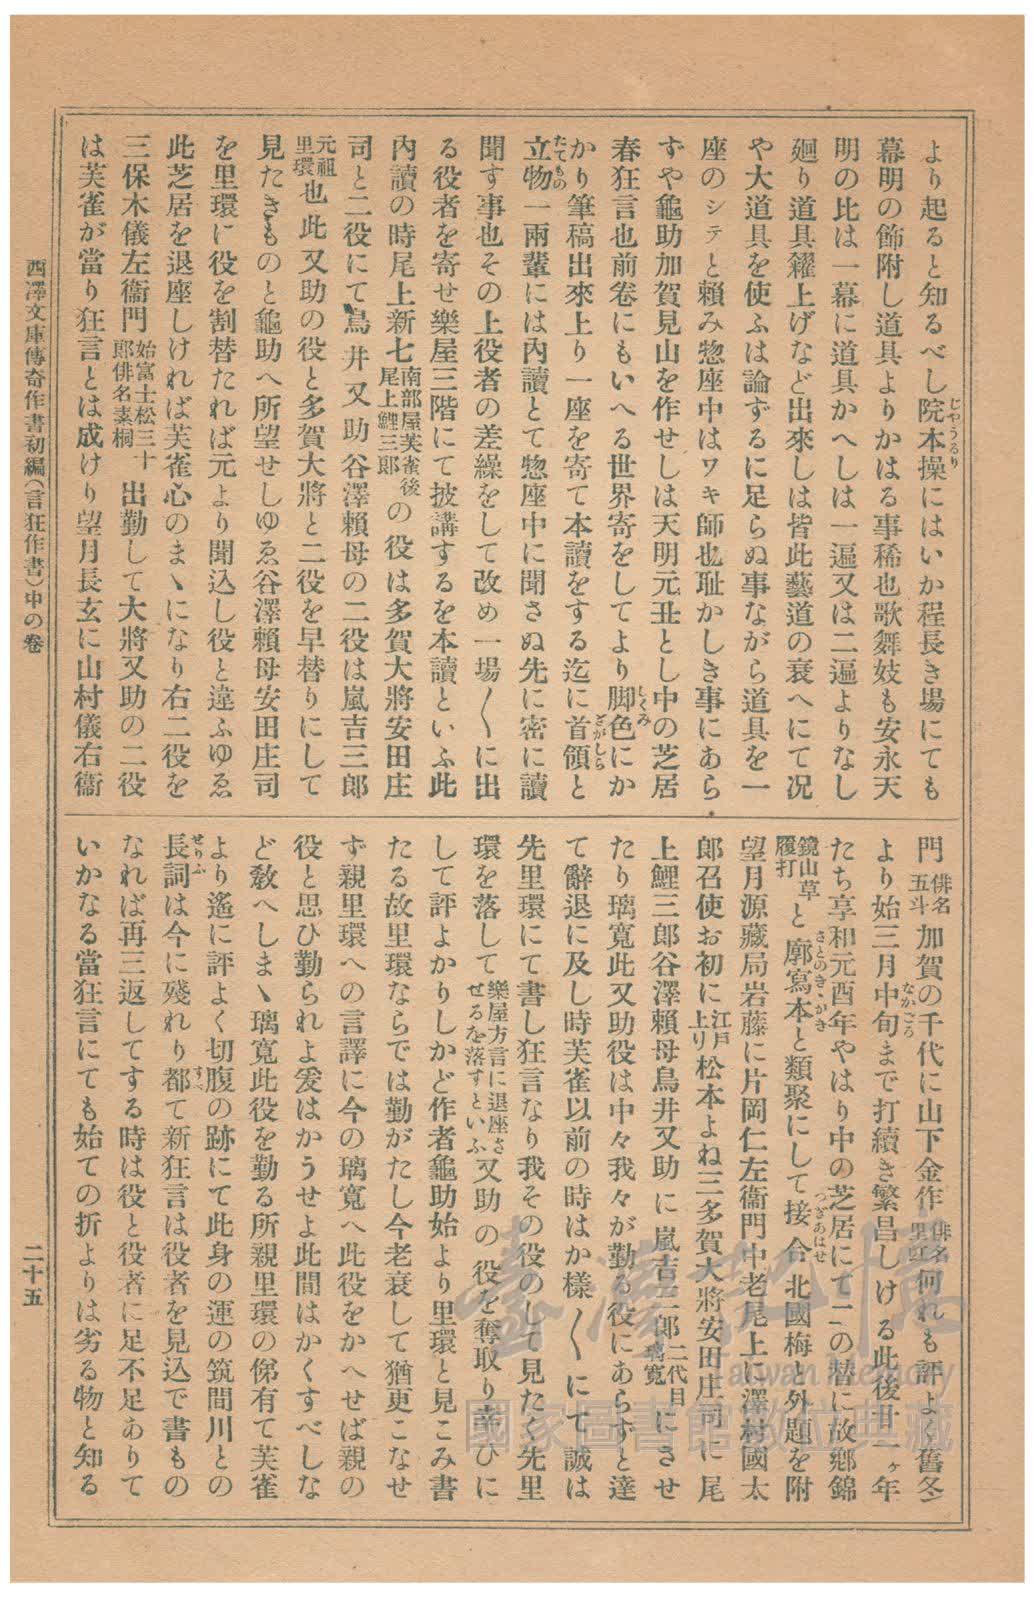 より起ると知るべし院本操にはいか程長き場にても
じやうるり
幕明の飾附し道具よりかはる事稀也歌舞妓も安永天
明の比は一幕に道具かへしは一遍又は二遍よりなし
廻り道具糶上げなど出來しは皆此藝道の衰へにて况
や大道具を使ふは論ずるに足らぬ事ながら道具を一
座のシテと賴み惣座中はワキ師也耻かしき事にあら
ずや龜助加賀見山を作せしは天明元丑とし中の芝居
春狂言也前卷にもいへる世界寄をしてより脚色にか
しくみ
かり筆稿出來上り一座を寄て本讀をする迄に首領と
ざがしら
立物一兩輩には內讀とて惣座中に聞さぬ先に密に讀
たてもの
聞す事也その上役者の差繰をして改め一場〱に出
る役者を寄せ樂屋三階にて披講するを本讀といふ此
內讀の時尾上新七南部屋芙雀後尾上鯉三郎の役は多賀大將安田庄
司と二役にて鳥井又助谷澤賴母の二役は嵐吉三郎
元祖里環也此又助の役と多賀大將と二役を早替りにして
見たきものと龜助へ所望せしゆゑ谷澤賴母安田庄司
を里環に役を割替たれば元より聞込し役と違ふゆゑ
此芝居を退座しければ芙雀心のまゝになり右二役を
三保木儀左衞門始富士松三十郎俳名素桐出勤して大將又助の二役
は芙雀が當り狂言とは成けり望月長玄に山村儀右衞
門俳名五斗加賀の千代に山下金作俳名里虹何れも評よく舊冬
より始三月中旬まで打續き繁昌しける此後廿一ヶ年
なかごろ
たち享和元酉年やはり中の芝居にて二の替に故鄕錦
鏡山草履打と廓寫本と類聚にして接合北國梅と外題を附
さとのきゝがき
つぎあはせ
望月源藏局岩藤に片岡仁左衞門中老尾上に澤村國太
郎召使お初に江戶上り松本よね三多賀大將安田庄司に尾
上鯉三郎谷澤賴母鳥井又助に嵐吉三郎二代目璃寬にさせ
たり璃寬此又助役は中々我々が勤る役にあらずと達
て辭退に及し時芙雀以前の時はか樣〱にて誠は
先里環にて書し狂言なり我その役のして見たく先里
環を落して樂屋方言に退座させるを落すといふ又助の役を奪取り幸ひに
して評よかりしかど作者龜助始より里環と見こみ書
たる故里環ならでは勤がたし今老衰して猶更こなせ
ず親里環への言譯に今の璃寬へ此役をかへせば親の
役と思ひ勤られよ爰はかうせよ此間はかくすべしな
ど敎へしまゝ璃寬此役を勤る所親里環の俤有て芙雀
より遙に評よく切腹の跡にて此身の運の筑間川との
長詞は今に殘れり都て新狂言は役者を見込で書もの
せりふ
すべ
なれば再三返してする時は役と役者に足不足ありて
いかなる當狂言にても始ての折よりは劣る物と知る
西澤文庫傳奇作書初編(言狂作書)中の卷
二十五
臺灣記憶
Taiwan Memory
國家圖書館數位典藏